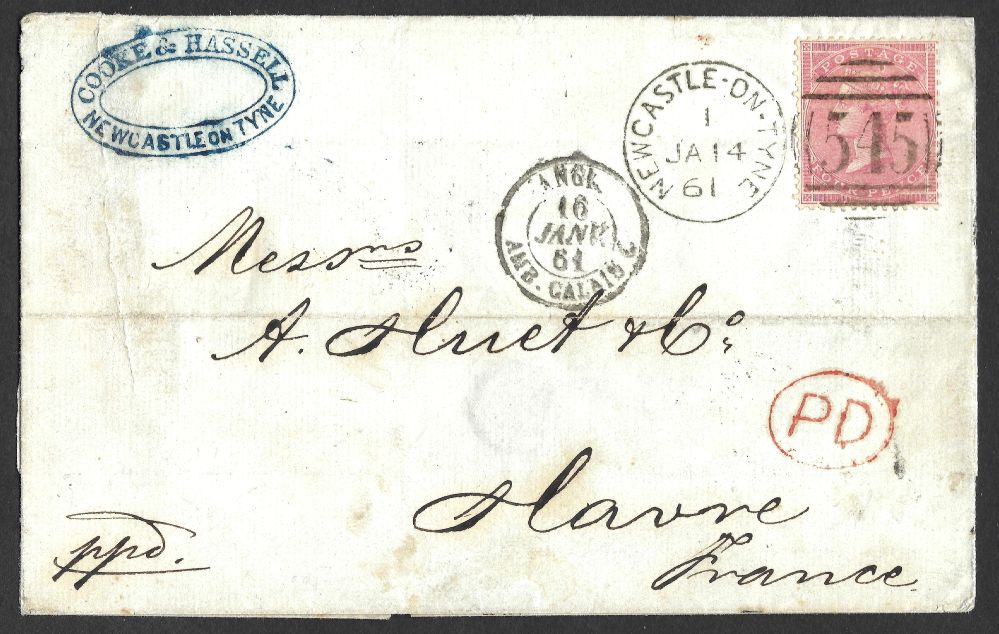 COOKE & HASSELL
NEWCASTLE ON TYNE
NEWCASTLE-ON-TYNE
1
JA 14
61
POSTAGE
545
ANGL.
16
JANV.
61
AMB. CALAIS
Messrs
A. Huet & Co.
PD
Havre
France
ppd.